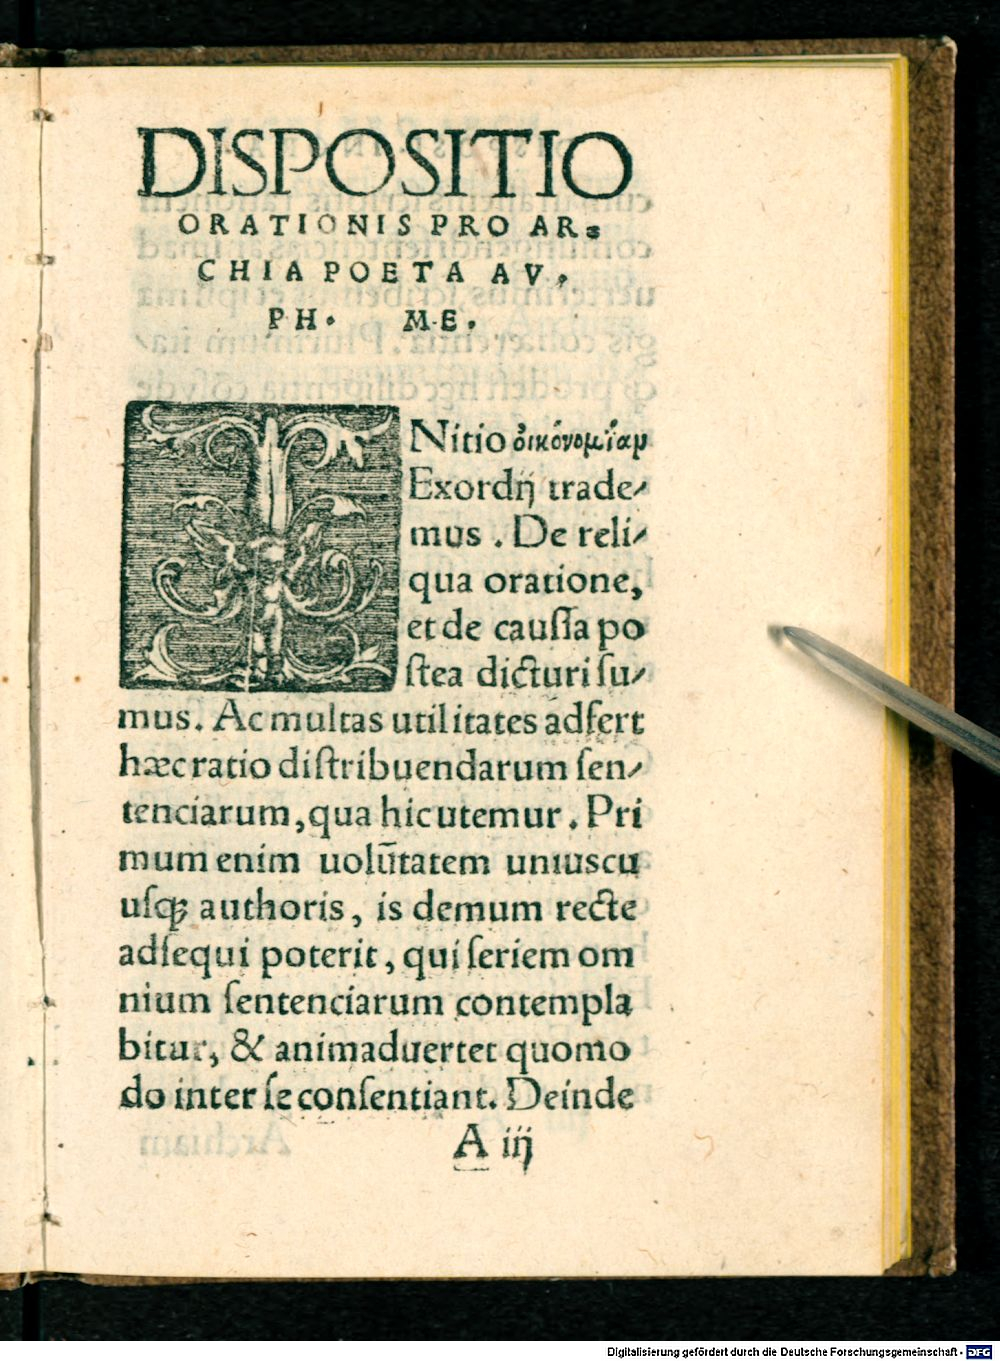 DISPOSITIO
ORATIONIS PRO AR⸗
CHIA POETA AV.
PH. ME.
INitio οἰκονομίαμ
Exordij trade⸗
mus. De reli⸗
qua oratione,
et de caussa po
stea dicturi su⸗
mus. Ac multas utilitates adfert
hæc ratio distribuendarum sen⸗
tenciarum, qua hic utemur. Pri
mum enim uolūtatem uniuscu
usqꝫ authoris, is demum recte
adsequi poterit, qui seriem om
nium sentenciarum contempla
bitur, & animaduertet quomo
do inter se consentiant. Deinde
A iij
Digitalisierung gefördert durch die Deutsche Forschungsgemeinschaft - DFG